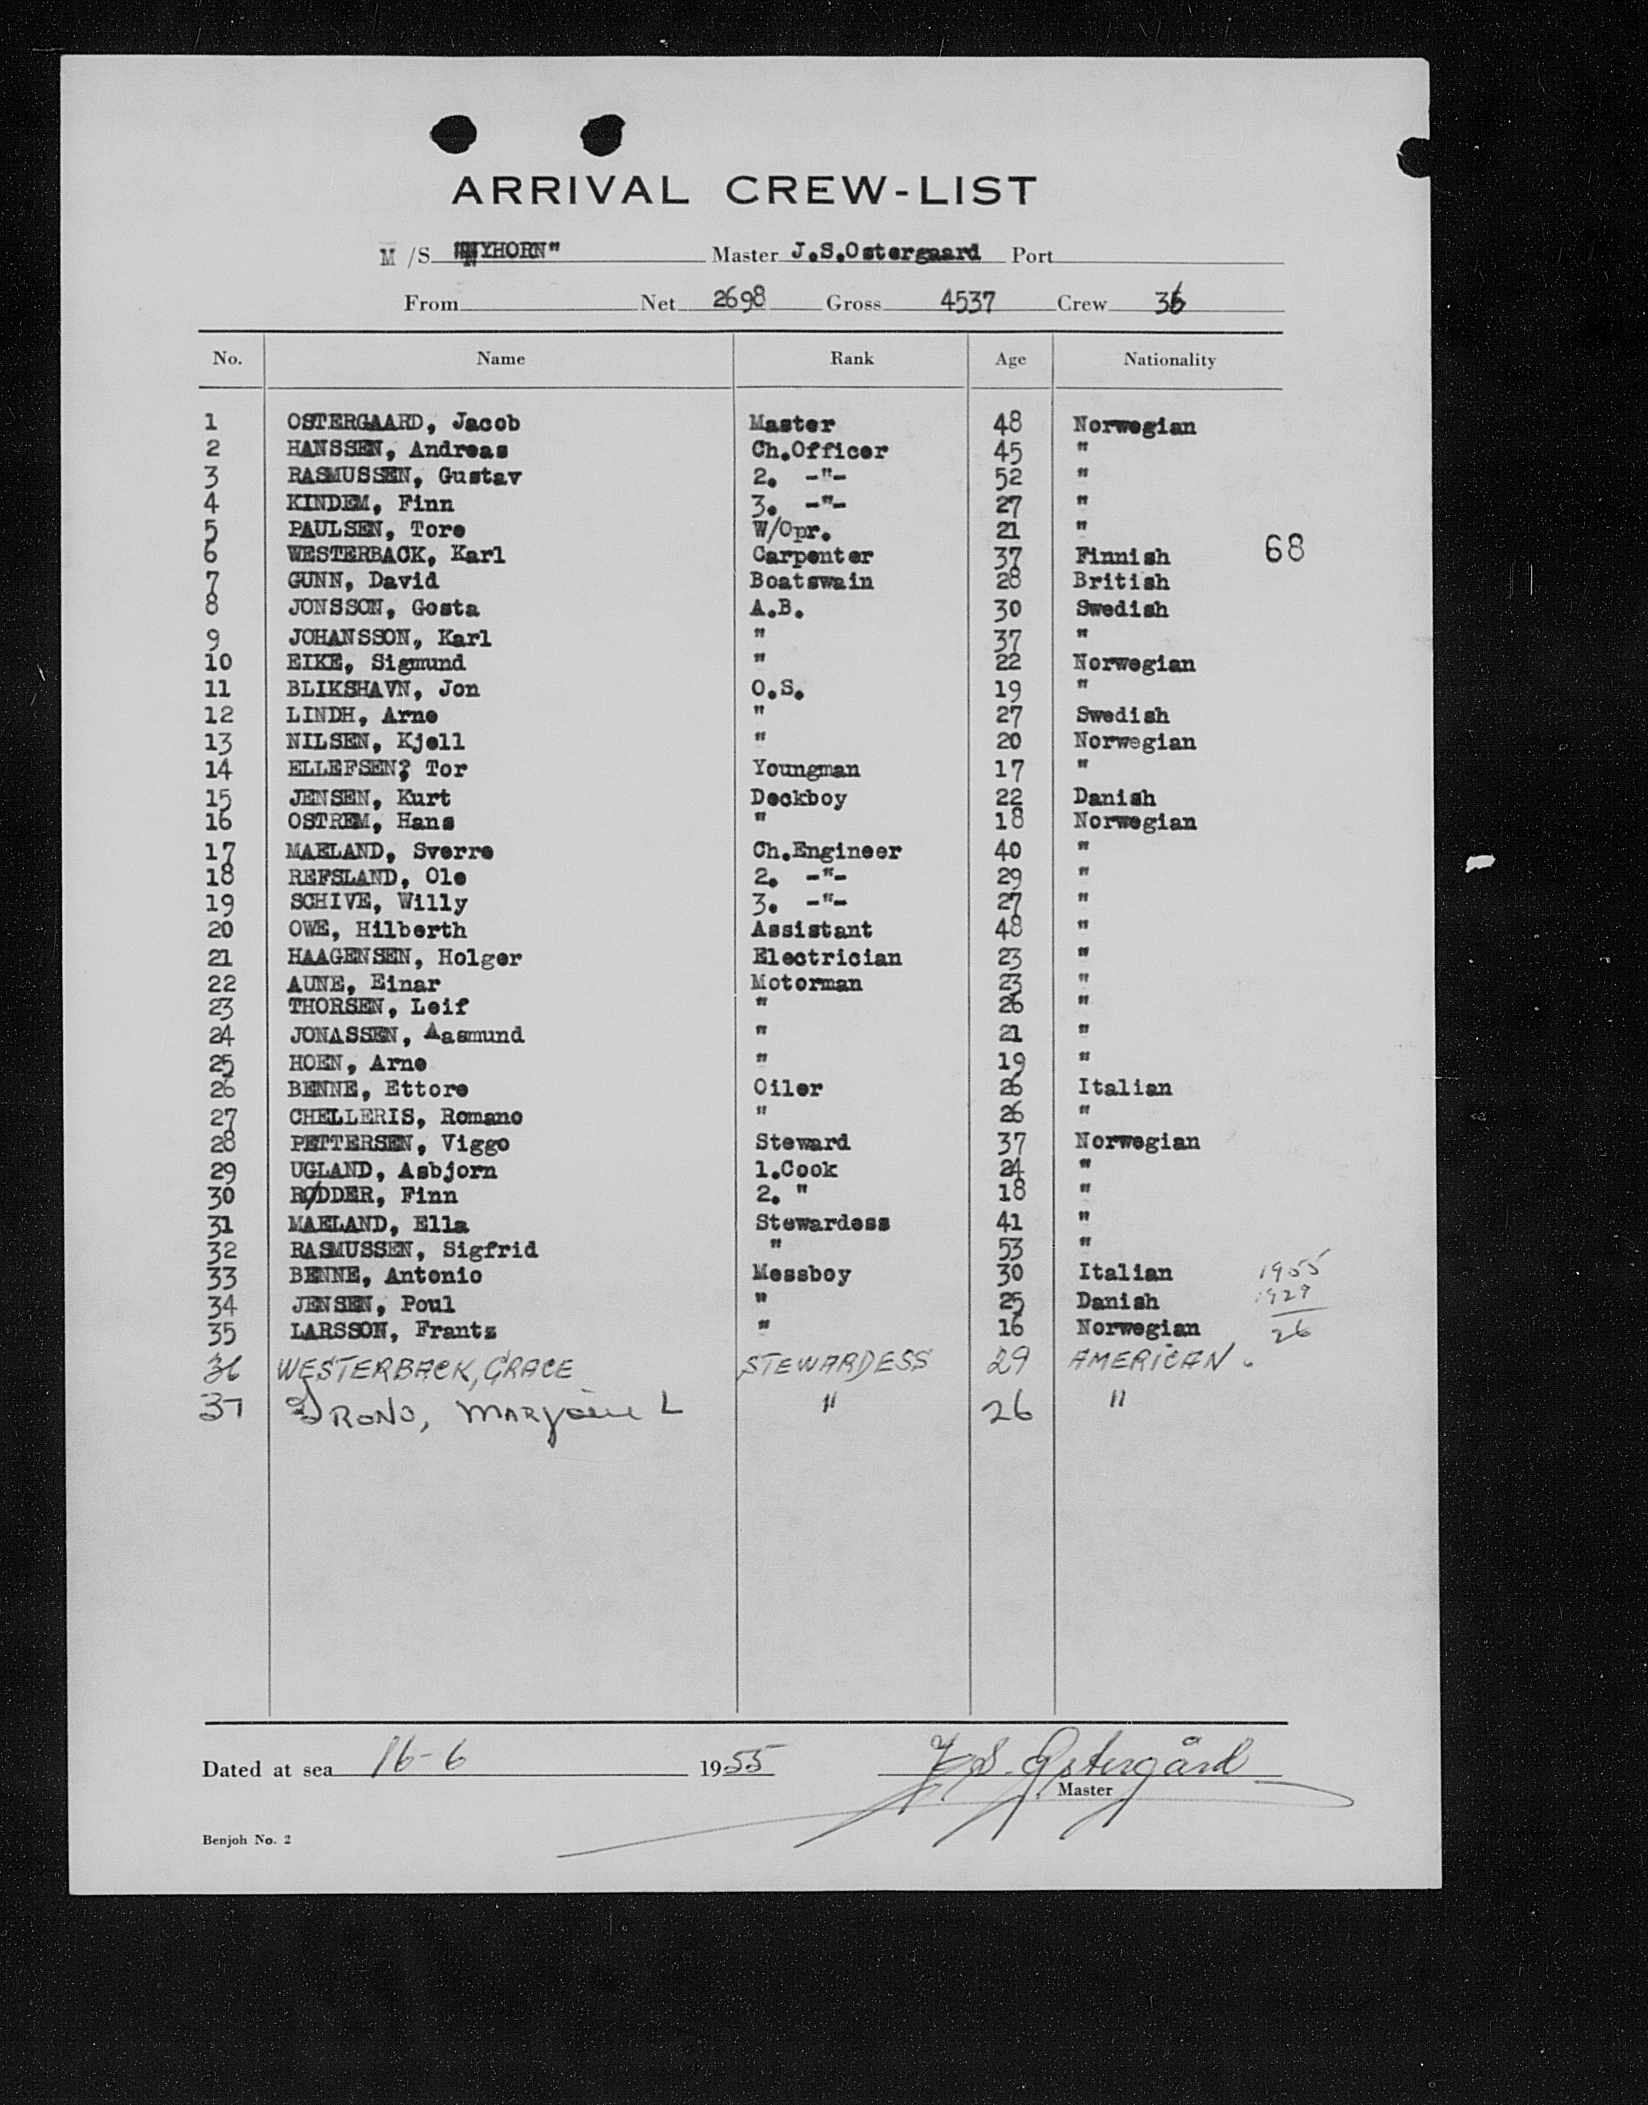 ARRIVAL CREW-LIST
M /S "NYHORN" Master J.S.Ostergaard Port
From Net 2698 Gross 4537 Crew 36
No. Name Rank Age Nationality
1 OSTERGAARD, Jacob Master 48 Norwegian
2 HANSSEN, Andreas Ch.Officer 45 "
3 RASMUSSEN, Gustav 2. -"- 52 "
4 KINDEM, Finn 3. -"- 27 "
5 PAULSEN, Tore W/Opr. 21 "
6 WESTERBACK, Karl Carpenter 37 Finnish 68
7 GUNN, David Boatswain 28 British
8 JONSSON, Gosta A.B. 30 Swedish
9 JOHANSSON, Karl " 37 "
10 EIKE, Sigmund " 22 Norwegian
11 BLIKSHAVN, Jon O.S. 19 "
12 LINDH, Arne " 27 Swedish
13 NILSEN, Kjell " 20 Norwegian
14 ELLEFSEN? Tor Youngman 17 "
15 JENSEN, Kurt Deckboy 22 Danish
16 OSTREM, Hans " 18 Norwegian
17 MAELAND, Sverre Ch.Engineer 40 "
18 REFSLAND, Ole 2. -"- 29 "
19 SCHIVE, Willy 3. -"- 27 "
20 OWE, Hilberth Assistant 48 "
21 HAAGENSEN, Holger Electrician 23 "
22 AUNE, Einar Motorman 23 "
23 THORSEN, Leif " 26 "
24 JONASSEN, Aasmund " 21 "
25 HOEN, Arne " 19 "
26 BENNE, Ettore Oiler 26 Italian
27 CHELLERIS, Romano " 26 "
28 PETTERSEN, Viggo Steward 37 Norwegian
29 UGLAND, Asbjorn 1.Cook 24 "
30 RØDDER, Finn 2. " 18 "
31 MAELAND, Ella Stewardess 41 "
32 RASMUSSEN, Sigfrid " 53 "
33 BENNE, Antonio Messboy 30 Italian 1955
34 JENSEN, Poul " 25 Danish 1929
35 LARSSON, Frantz " 16 Norwegian 26
36 WESTERBACK, GRACE STEWARDESS 29 AMERICAN.
37 MARJORIE L " 26 "
Dated at sea 16-6 1955 J. S. Østergård
Master
Benjoh No. 2